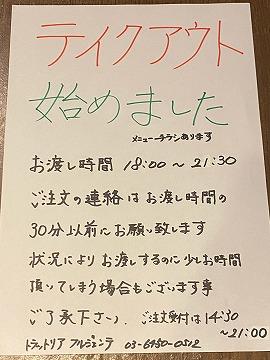 テイクアウト
始めました
メニューチラシあります
お渡し時間 18:00〜21:30
ご注文の連絡はお渡し時間の
30分以前にお願い致します
状況によりお渡しするのに少しお時間
頂いてしまう場合もございます事
ご了承下さい. ご注文受付は14:30
〜21:00
トラットリア アルジェンテ 03-6450-0512